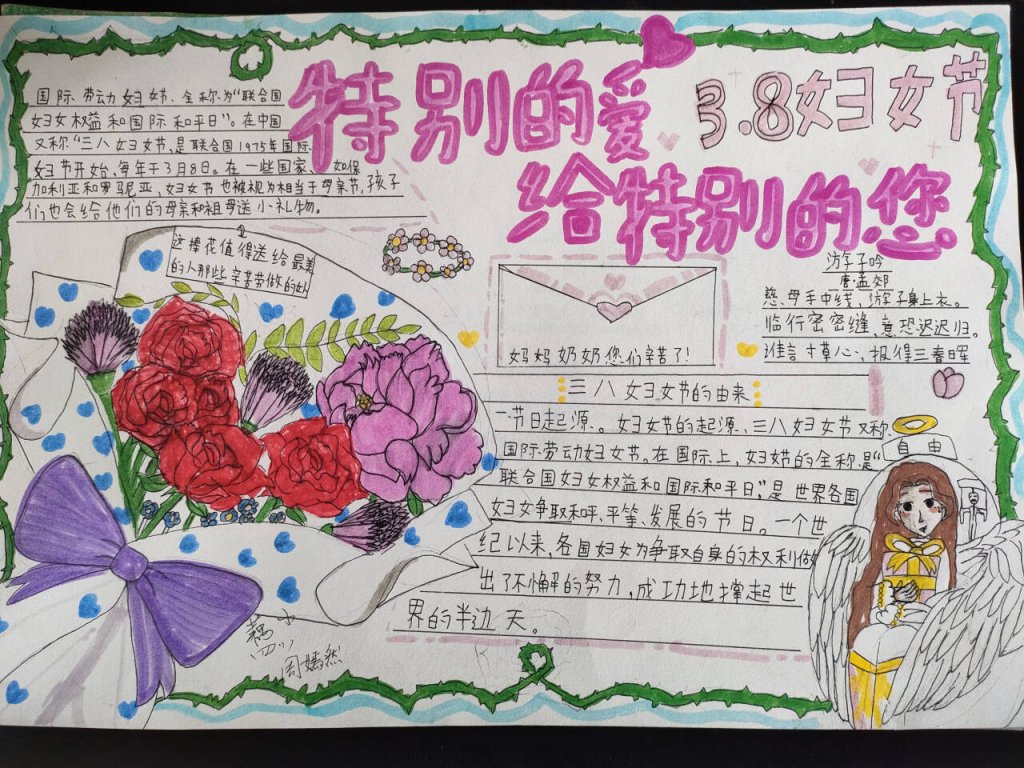 特别的爱
给特别的您
3.8妇女节
国际劳动妇女节、全称为“联合国
妇女权益和国际和平日”。在中国
又称“三八妇女节,是联合国1975年国际
妇节开始,每年于3月8日。在一些国家、如保
加利亚和罗马尼亚,妇女节也被视为相当于母亲节,孩子
们也会给他们的母亲和祖母送小礼物。
这捧花值得送给最美
的人那些辛苦劳做的她
妈妈奶奶您们辛苦了!
游子吟
唐孟郊
慈母手中线,游子身上衣。
临行密密缝,意恐迟迟归。
谁言寸草心,报得三春晖
三八妇女节的由来
一节日起源。妇女节的起源、三八妇女节又称
国际劳动妇女节。在国际上,妇女节的全称是“
联合国妇女权益和国际和平日”,是世界各国
妇女争取和平、平等、发展的节日。一个世
纪以来,各国妇女为争取自身的权利做
出了不懈的努力,成功地撑起世
界的半边天。
自由
(四1)
周嫣然